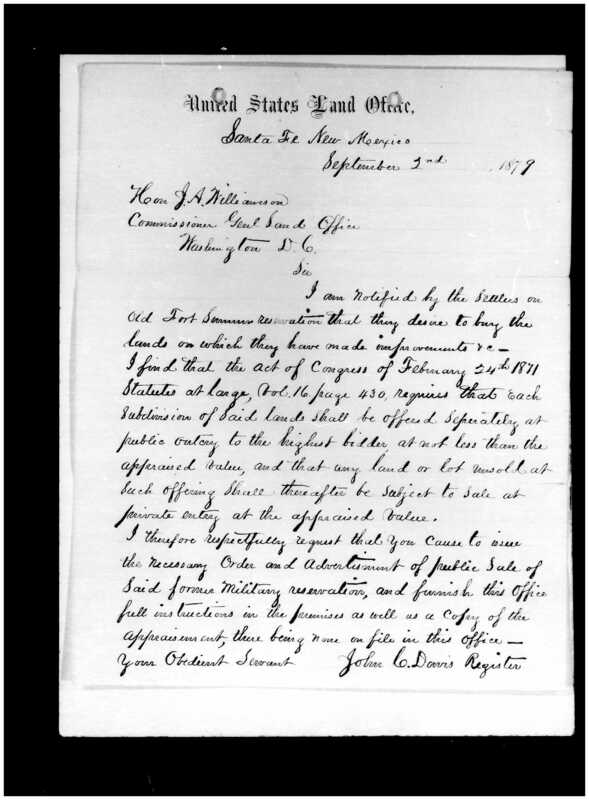 United States Land Office,
Santa Fe New Mexico
September 2nd, 1879
Hon J. A. Williamson
Commissioner Genl Land Office
Washington D. C.
Sir
I am notified by the Settlers on
Old Fort Sumner reservation that they desire to buy the
lands on which they have made improvements &c —
I find that the act of Congress of February 24th 1871
Statutes at large, Vol. 16, page 430, requires that Each
Subdivision of Said lands Shall be offerd Seperately at
public outcry to the highest bidder at not less than the
appraised value, and that any land or lot unsold at
Such offering Shall thereafter be Subject to Sale at
private entry at the appraised Value.
I therefore respectfully request that you cause to issue
the necessary Order and Advertisment of public Sale of
Said former Military reservation, and furnish this Office
full instructions in the premises as well as a Copy of the
Appraisement, there being none on file in this office —
Your Obedient Servant John C. Davis Register